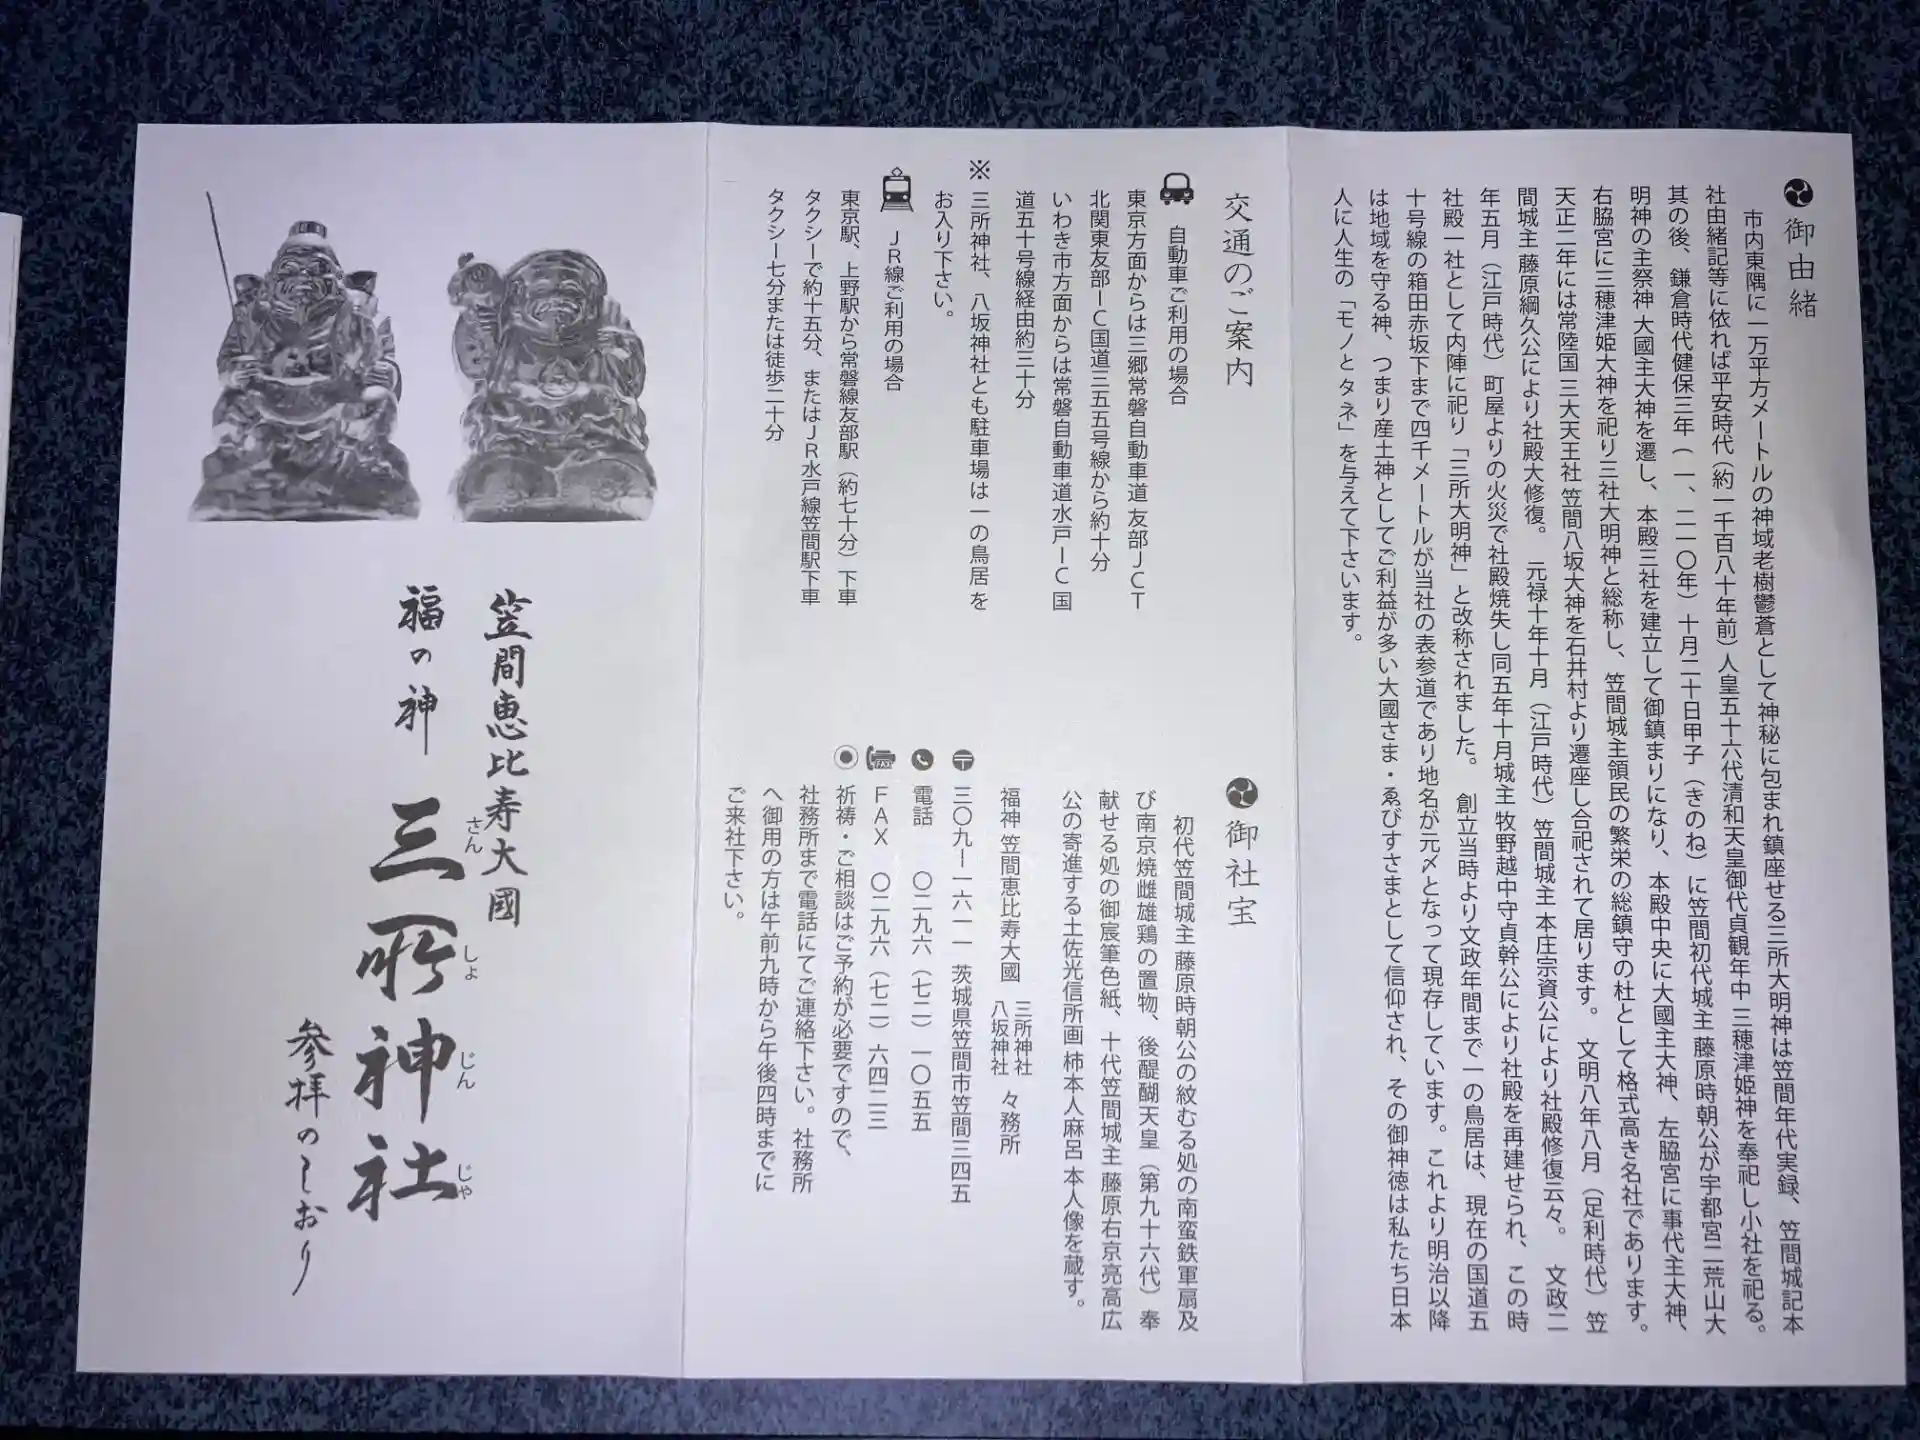 御由緒
市内東隅に一万平方メートルの神域老樹鬱蒼として神秘に包まれ鎮座せる三所大明神は笠間年代実録、笠間城記本
社由緒記等に依れば平安時代（約一千百八十年前）人皇五十六代清和天皇御代貞観年中 三穂津姫神を奉祀し小社を祀る。
其の後、鎌倉時代健保三年（一、二一〇年）十月二十日甲子（きのね）に笠間初代城主 藤原時朝公が宇都宮二荒山大
明神の主祭神 大國主大神を遷し、本殿三社を建立して御鎮まりになり、本殿中央に大國主大神、左脇宮に事代主大神、
右脇宮に三穂津姫大神を祀り三社大明神と総称し、笠間城主領民の繁栄の総鎮守の杜として格式高き名社であります。
天正二年には常陸国 三大天王社 笠間八坂大神を石井村より遷座し合祀されて居ります。 文明八年八月（足利時代）笠
間城主 藤原綱久公により社殿大修復。 元禄十年十月（江戸時代）笠間城主 本庄宗資公により社殿修復云々。 文政二
年五月（江戸時代）町屋よりの火災で社殿焼失し同五年十月城主 牧野越中守貞幹公により社殿を再建せられ、この時
社殿一社として内陣に祀り「三所大明神」と改称されました。 創立当時より文政年間まで一の鳥居は、現在の国道五
十号線の箱田赤坂下まで四千メートルが当社の表参道であり地名が元〆となって現存しています。これより明治以降
は地域を守る神、つまり産土神としてご利益が多い大國さま・ゑびすさまとして信仰され、その御神徳は私たち日本
人に人生の「モノとタネ」を与えて下さいます。
交通のご案内
自動車ご利用の場合
東京方面からは三郷常磐自動車道 友部ＪＣＴ
北関東友部ＩＣ国道三五五号線から約十分
いわき市方面からは常磐自動車道水戸ＩＣ 国
道五十号線経由約三十分
※ 三所神社、八坂神社とも駐車場は一の鳥居 を
お入り下さい。
ＪＲ線ご利用の場合
東京駅、上野駅から常磐線友部駅（約七十分）下車
タクシーで約十五分、またはＪＲ水戸線笠間駅下車
タクシー七分または徒歩二十分
御社宝
初代笠間城主 藤原時朝公の紋むる処の南蛮鉄軍扇及
び南京焼雌雄鶏の置物、後醍醐天皇（第九十六代）奉
献せる処の御宸筆色紙、十代笠間城主 藤原右京亮高広
公の寄進する土佐光信所画 柿本人麻呂 本人像を蔵す。
福神 笠間恵比寿大國 三所神社 八坂神社 々務所
〒 三〇九ー一六一一 茨城県笠間市笠間三四五
電話 〇二九六（七二）一〇五五
FAX ＦＡＸ 〇二九六（七二）六四二三
祈祷・ご相談はご予約が必要ですので、
社務所まで電話にてご連絡下さい。社務所
へ御用の方は午前九時から午後四時までに
ご来社下さい。
笠間恵比寿大國
福の神 三所神社
さん しょ じん じゃ
参拝のしおり